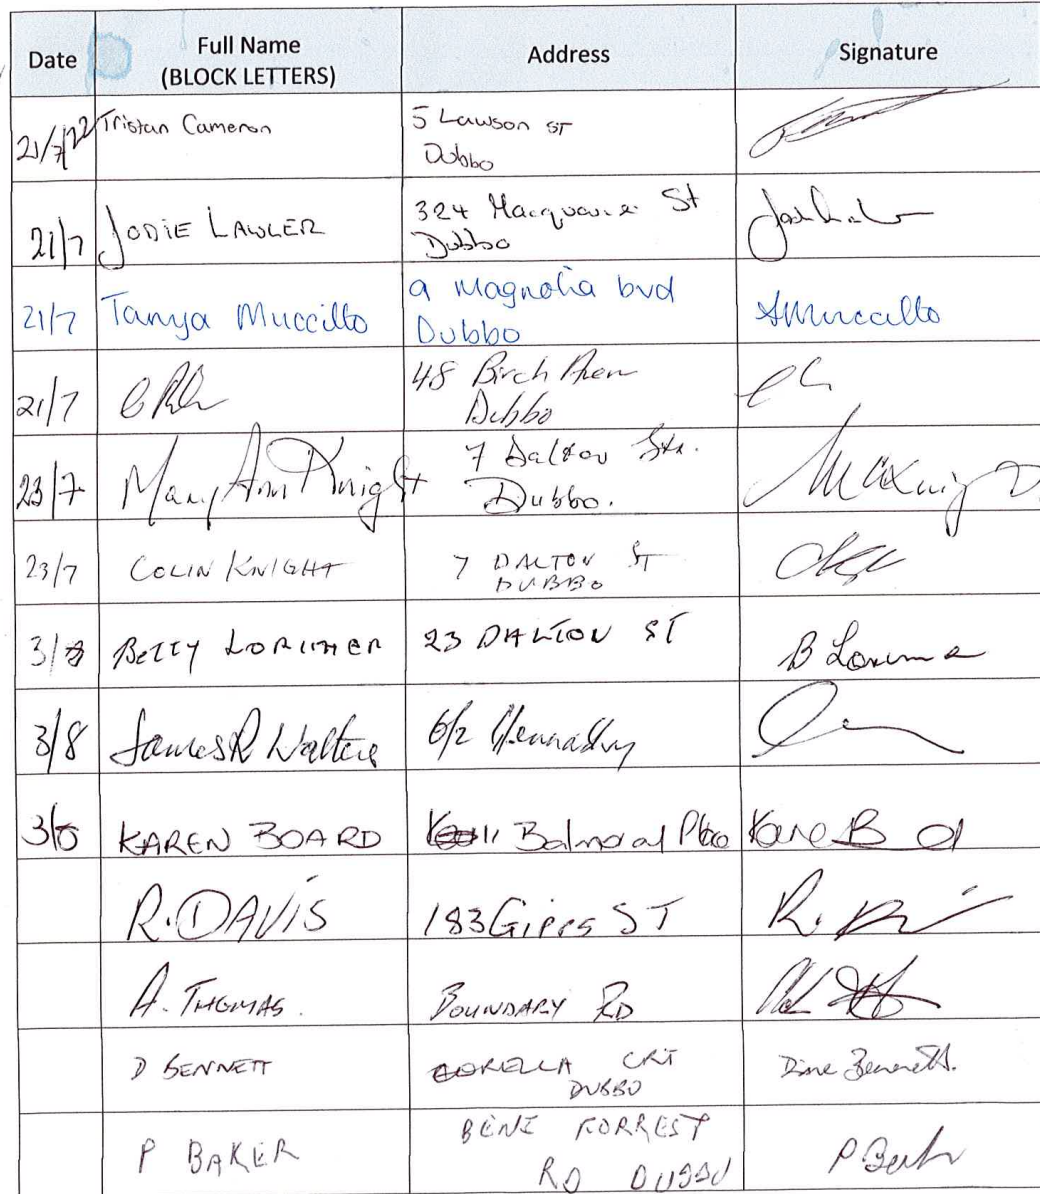 Date
Full Name
(BLOCK LETTERS)
Address
Signature
21/7/22
Tristan Cameron
5 Lawson ST
Dubbo
21/7
JODIE LAWLER
324 Macquarie St
Dubbo
21/7
Tanya Muccillo
9 Magnolia bvd
Dubbo
21/7
48 Birch
Dubbo
23/7
Mary Ann Knight
7 Dalton Str.
Dubbo.
23/7
COLIN KNIGHT
7 DALTON ST
DUBBO
3/8
BETTY LORIMER
23 DALTON ST
3/8
James R Walters
6/2
3/8
KAREN BOARD
11 Balmoral Place
R. DAVIS
183 GIPPS ST
R.
A. THOMAS.
BOUNDARY RD
D BENNETT
CORELLA CRT
DUBBO
P BAKER
BENI FORREST
RD DUBBO
P